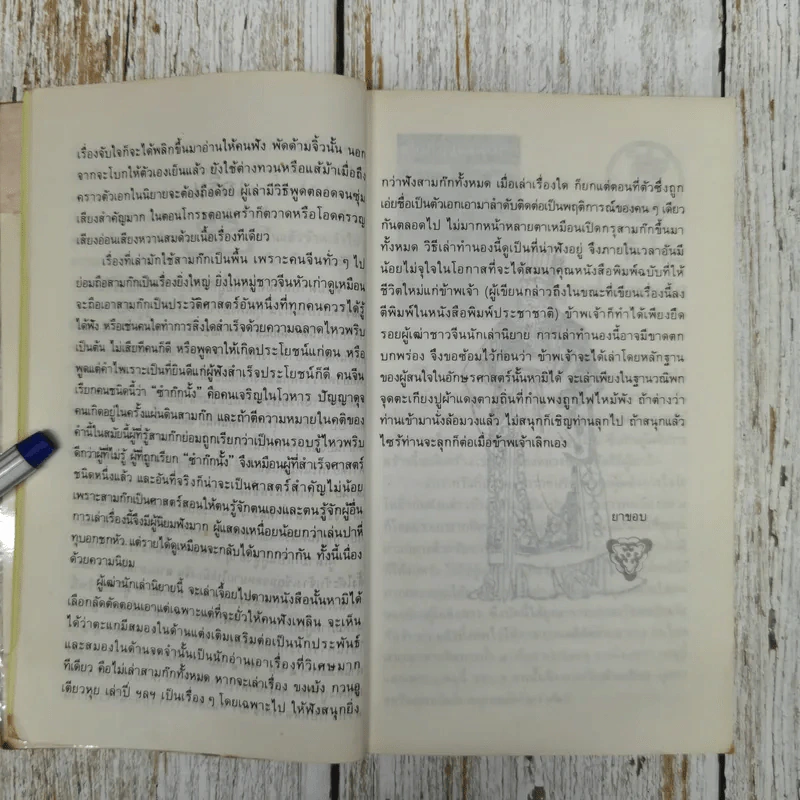 เรื่องจับใจก็จะได้พลิกขึ้นมาอ่านให้คนฟัง พัดด้ามจิ้วนั้น นอก
จากจะโบกให้ตัวเองเย็นแล้ว ยังใช้ต่างทวนหรือแส้ม้าเมื่อถึง
คราวตัวเอกในนิยายจะต้องถือด้วย ผู้เล่ามีวิธีพูดตลอดจนซุ่ม
เสียงสำคัญมาก ในตอนโกรธตอนเศร้าก็ตวาดหรือโอดครวญ
เสียงอ่อนเสียงหวานสมด้วยเนื้อเรื่องทีเดียว
เรื่องที่เล่ามักใช้สามก๊กเป็นพื้น เพราะคนจีนทั่ว ๆ ไป
ย่อมถือสามก๊กเป็นเรื่องยิ่งใหญ่ ยิ่งในหมู่ชาวจีนหัวเก่าดูเหมือน
จะถือเอาสามก๊กเป็นประวัติศาสตร์อันหนึ่งที่ทุกคนควรได้รู้
ได้ฟัง หรือเช่นคนใดทำการสิ่งใดสำเร็จด้วยความฉลาดไหวพริบ
เป็นต้น ไม่เสียทีคนก็ดี หรือพูดจาให้เกิดประโยชน์แก่ตน หรือ
พูดแต่คำไพเราะเป็นที่ยินดีแก่ผู้ฟังสำเร็จประโยชน์ก็ดี คนจีน
เรียกคนชนิดนี้ว่า “ซำก๊กนั้ง” คือคนเจริญในโวหาร ปัญญาดุจ
คนเกิดอยู่ในครั้งแผ่นดินสามก๊ก และถ้าตีความหมายในคติของ
คำนี้ในสมัยนี้ผู้ที่รู้สามก๊กย่อมถูกเรียกว่าเป็นคนรอบรู้ไหวพริบ
ดีกว่าผู้ที่ไม่รู้ ผู้ที่ถูกเรียก “ซำก๊กนั้ง” จึงเหมือนผู้ที่สำเร็จศาสตร์
ชนิดหนึ่งแล้ว และอันที่จริงก็น่าจะเป็นศาสตร์สำคัญไม่น้อย
เพราะสามก๊กเป็นศาสตร์สอนให้ตนรู้จักตนเองและตนรู้จักผู้อื่น
การเล่าเรื่องนี้จึงมีผู้นิยมฟังมาก ผู้แสดงเหนื่อยน้อยกว่าเล่นปาหี่
ทุบอกชกหัว แต่รายได้ดูเหมือนจะกลับได้มากกว่ากัน ทั้งนี้เนื่อง
ด้วยความนิยม
ผู้เฒ่านักเล่านิยายนี้ จะเล่าเจื้อยไปตามหนังสือนั้นหามิได้
เลือกลัดตัดตอนเอาแต่เฉพาะแต่ที่จะยั่วให้คนฟังเพลิน จะเห็น
ได้ว่าตะแกมีสมองในด้านแต่งเติมเสริมต่อเป็นนักประพันธ์
และสมองในด้านจดจำนั้นเป็นนักอ่านเอาเรื่องที่วิเศษมาก
ทีเดียว คือไม่เล่าสามก๊กทั้งหมด หากจะเล่าเรื่อง ขงเบ้ง กวนอู
เตียวหุย เล่าปี่ ฯลฯ เป็นเรื่อง ๆ โดยเฉพาะไป ให้ฟังสนุกยิ่ง
กว่าฟังสามก๊กทั้งหมด เมื่อเล่าเรื่องใด ก็ยกแต่ตอนที่ตัวซึ่งถูก
เอ่ยชื่อเป็นตัวเอกเอามาลำดับติดต่อเป็นพฤติการณ์ของคน ๆ เดียว
กันตลอดไป ไม่มากหน้าหลายตาเหมือนเปิดกรุสามก๊กขึ้นมา
ทั้งหมด วิธีเล่าทำนองนี้ดูเป็นที่น่าฟังอยู่ จึงภายในเวลาอันมี
น้อยไม่จุใจในโอกาสที่จะได้สมนาคุณหนังสือพิมพ์ฉบับที่ให้
ชีวิตใหม่แก่ข้าพเจ้า (ผู้เขียนกล่าวถึงในขณะที่เขียนเรื่องนี้ลง
ตีพิมพ์ในหนังสือพิมพ์ประชาชาติ) ข้าพเจ้าก็ทำได้เพียงยึด
รอยผู้เฒ่าชาวจีนนักเล่านิยาย การเล่าทำนองนี้อาจมีขาดตก
บกพร่อง จึงขอซ้อมไว้ก่อนว่า ข้าพเจ้าจะได้เล่าโดยหลักฐาน
ของผู้สนใจในอักษรศาสตร์นั้นหามิได้ จะเล่าเพียงในฐานวณิพก
จุดตะเกียงปูผ้าแดงตามถิ่นที่กำแพงถูกไฟไหม้พัง ถ้าต่างว่า
ท่านเข้ามานั่งล้อมวงแล้ว ไม่สนุกก็เชิญท่านลุกไป ถ้าสนุกแล้ว
ไซร้ท่านจะลุกก็ต่อเมื่อข้าพเจ้าเลิกเอง
ยาขอบ